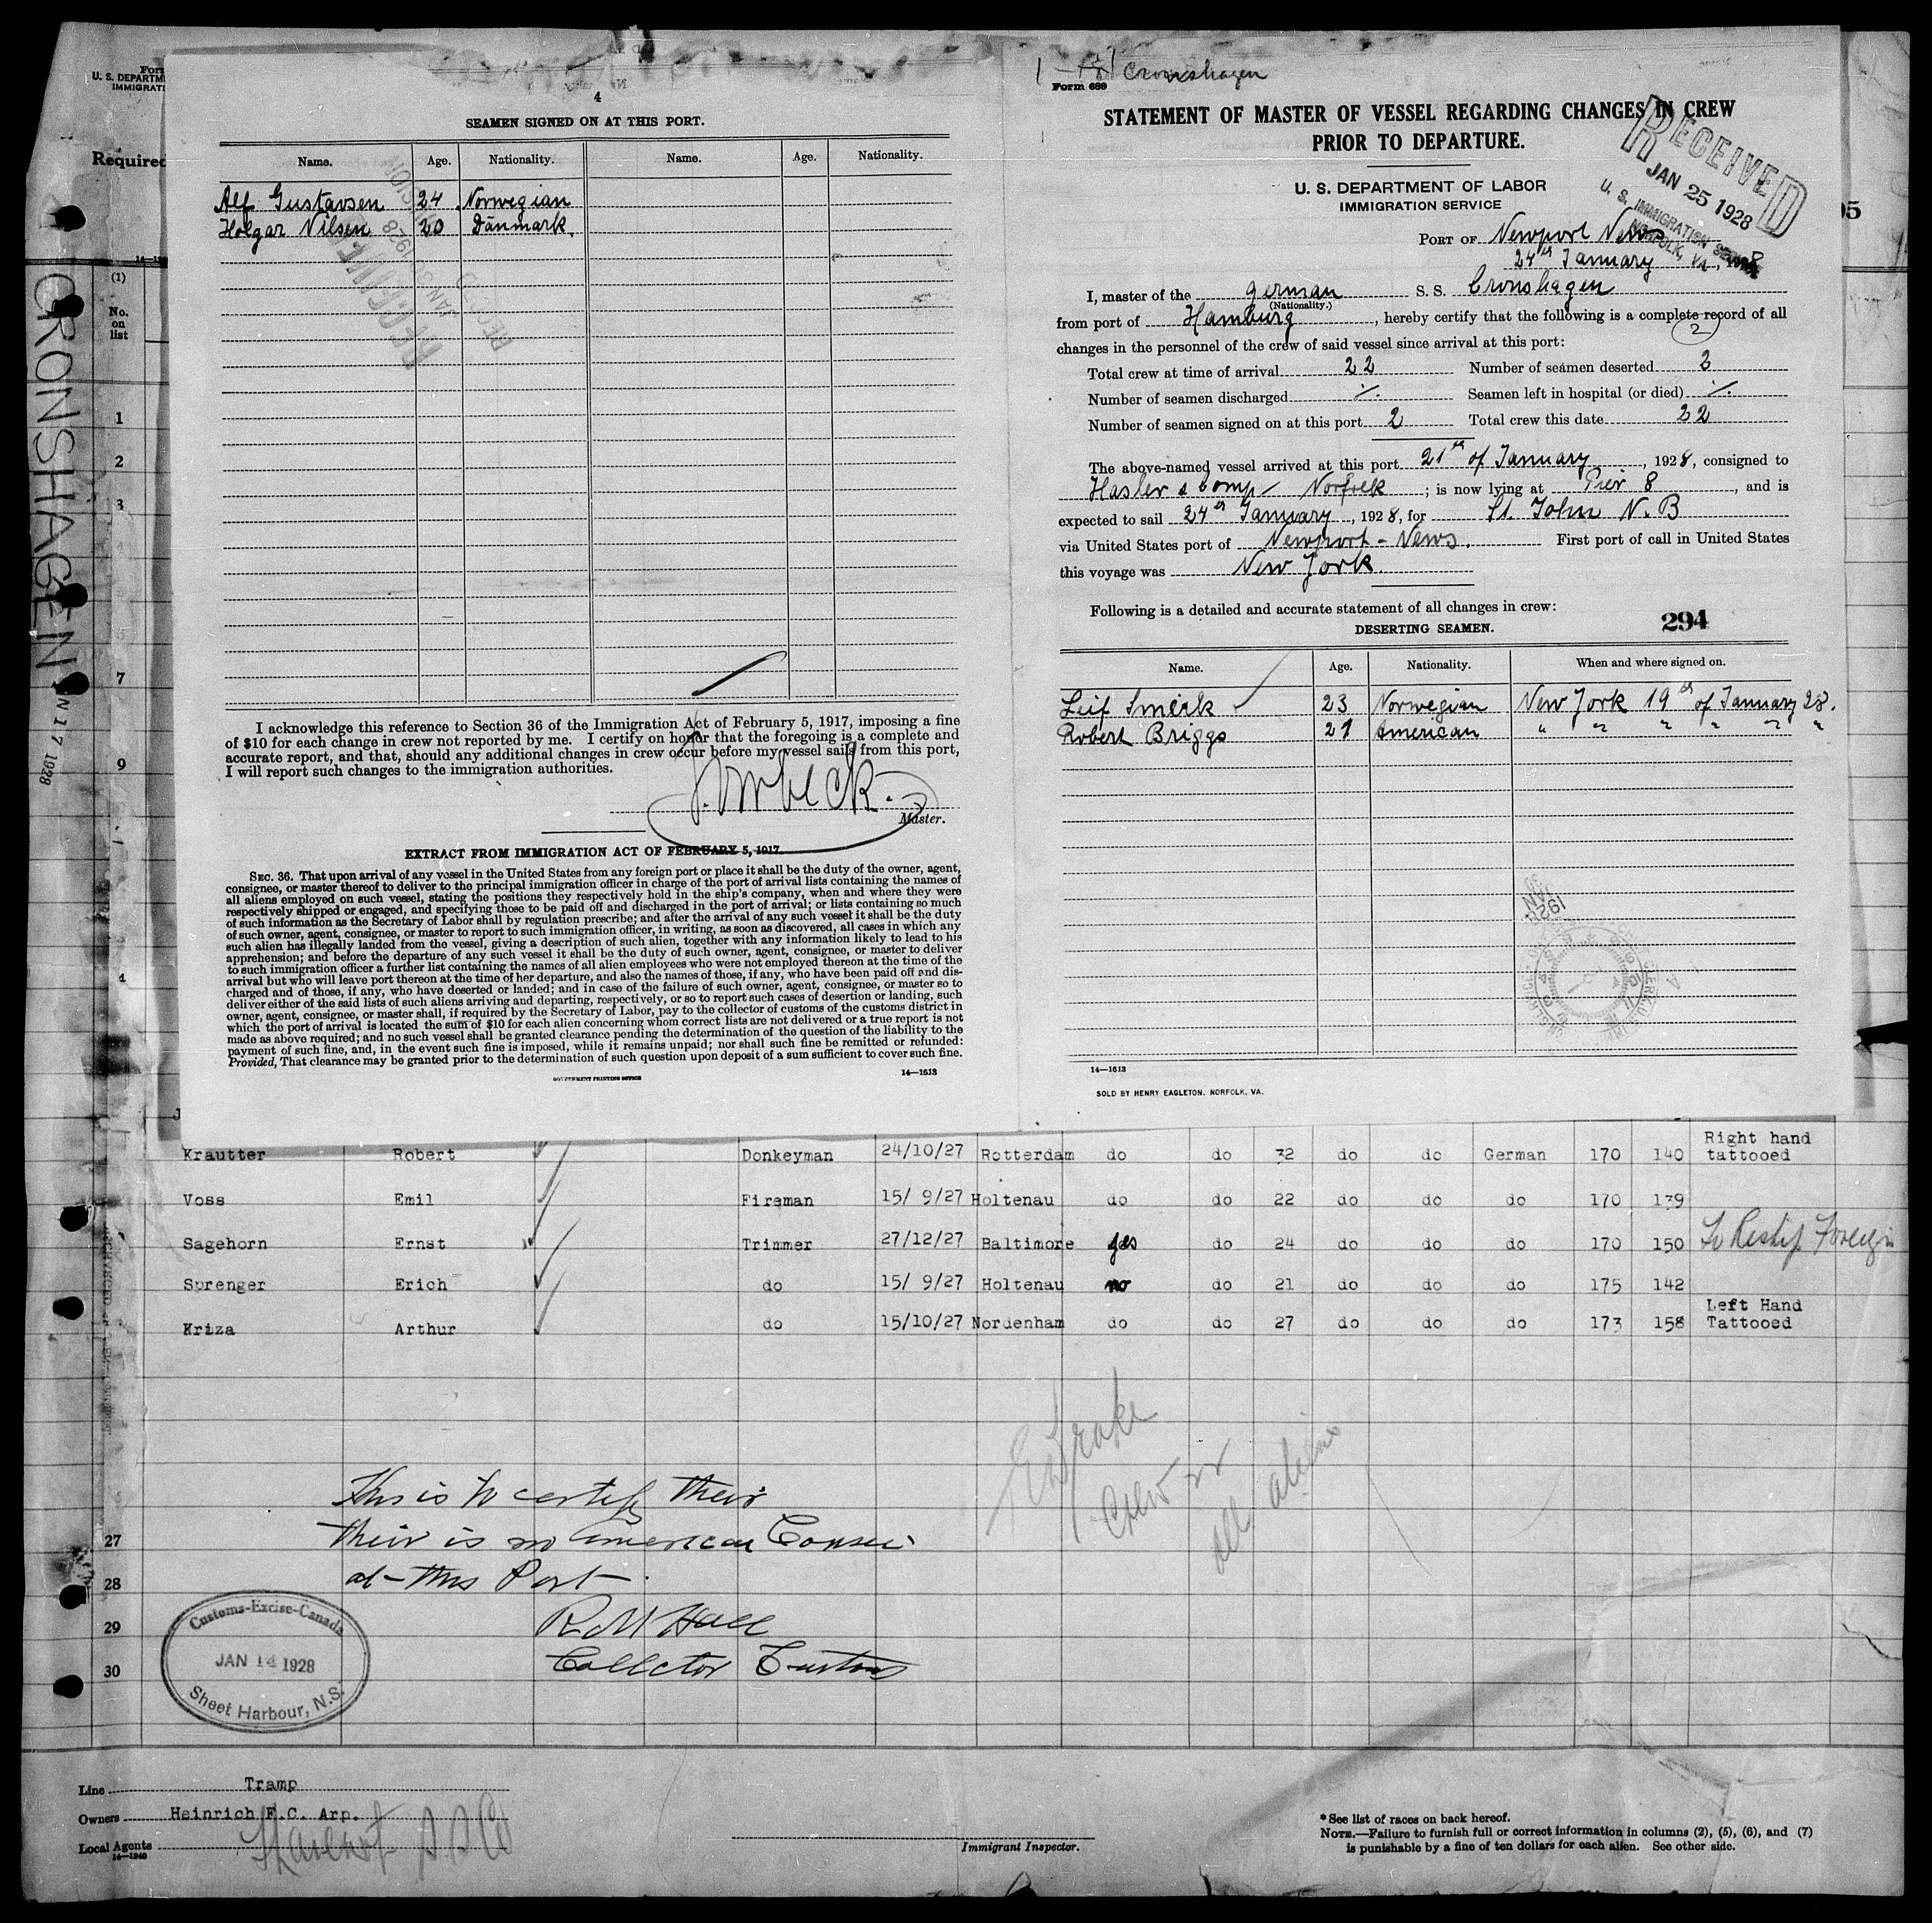 Form
U. S. DEPARTM
IMMIGRATI
Required
(1)
No.
on
list
1
2
3
7
9
CRONSHAGEN
JAN 17 1928
4
SEAMEN SIGNED ON AT THIS PORT.
Name. Age. Nationality. Name. Age. Nationality.
Alf Gustavsen 24 Norwegian
Holgar Nilsen 20 Dänmark.
I acknowledge this reference to Section 36 of the Immigration Act of February 5, 1917, imposing a fine
of $10 for each change in crew not reported by me. I certify on honor that the foregoing is a complete and
accurate report, and that, should any additional changes in crew occur before my vessel sails from this port,
I will report such changes to the immigration authorities.
Master.
EXTRACT FROM IMMIGRATION ACT OF FEBRUARY 5, 1917.
SEC. 36. That upon arrival of any vessel in the United States from any foreign port or place it shall be the duty of the owner, agent,
consignee, or master thereof to deliver to the principal immigration officer in charge of the port of arrival lists containing the names of
all aliens employed on such vessel, stating the positions they respectively hold in the ship's company, when and where they were
respectively shipped or engaged, and specifying those to be paid off and discharged in the port of arrival; or lists containing so much
of such information as the Secretary of Labor shall by regulation prescribe; and after the arrival of any such vessel it shall be the duty
of such owner, agent, consignee, or master to report to such immigration officer, in writing, as soon as discovered, all cases in which any
such alien has illegally landed from the vessel, giving a description of such alien, together with any information likely to lead to his
apprehension; and before the departure of any such vessel it shall be the duty of such owner, agent, consignee, or master to deliver
to such immigration officer a further list containing the names of all alien employees who were not employed thereon at the time of the
arrival but who will leave port thereon at the time of her departure, and also the names of those, if any, who have been paid off and dis-
charged and of those, if any, who have deserted or landed; and in case of the failure of such owner, agent, consignee, or master so to
deliver either of the said lists of such aliens arriving and departing, respectively, or so to report such cases of desertion or landing, such
owner, agent, consignee, or master shall, if required by the Secretary of Labor, pay to the collector of customs of the customs district in
which the port of arrival is located the sum of $10 for each alien concerning whom correct lists are not delivered or a true report is not
made as above required; and no such vessel shall be granted clearance pending the determination of the question of the liability to the
payment of such fine, and, in the event such fine is imposed, while it remains unpaid; nor shall such fine be remitted or refunded:
Provided, That clearance may be granted prior to the determination of such question upon deposit of a sum sufficient to cover such fine.
GOVERNMENT PRINTING OFFICE 14—1613
Cronshagen
Form 689
STATEMENT OF MASTER OF VESSEL REGARDING CHANGES IN CREW
PRIOR TO DEPARTURE.
U. S. DEPARTMENT OF LABOR
IMMIGRATION SERVICE
RECEIVED
JAN 25 1928
U. S. IMMIGRATION SERVICE
NORFOLK, VA.
PORT OF Newport News
24th January, 1928
I, master of the german S. S. Cronshagen
(Nationality.)
from port of Hamburg, hereby certify that the following is a complete record of all
2
changes in the personnel of the crew of said vessel since arrival at this port:
Total crew at time of arrival 22 Number of seamen deserted 2
Number of seamen discharged ·/. Seamen left in hospital (or died) ·/.
Number of seamen signed on at this port 2 Total crew this date 22
The above-named vessel arrived at this port 21th of January, 1928, consigned to
Hasler & Comp Norfolk; is now lying at Pier 8, and is
expected to sail 24th January, 1928, for St. John N. B
via United States port of Newport-News. First port of call in United States
this voyage was New York
Following is a detailed and accurate statement of all changes in crew:
294
DESERTING SEAMEN.
Name. Age. Nationality. When and where signed on.
Leif Smeik 23 Norwegian New York 19th of January 28.
Robert Briggs 21 American " " " " " "
14—1613
SOLD BY HENRY EAGLETON, NORFOLK, VA.
Krautter Robert Donkeyman 24/10/27 Rotterdam do do 32 do do German 170 140 Right hand tattooed
Voss Emil Fireman 15/ 9/27 Holtenau do do 22 do do do 170 139
Sagehorn Ernst Trimmer 27/12/27 Baltimore yes do 24 do do do 170 150 To Reship Foreign
Sprenger Erich do 15/ 9/27 Holtenau no do 21 do do do 175 142
Kriza Arthur do 15/10/27 Nordenham do do 27 do do do 173 158 Left Hand Tattooed
Drake
Crew 22
all aliens
This is to certify their
their is no American Consul
at this Port
R M Hall
Collector Customs
27
28
29
30
Customs-Excise-Canada
JAN 14 1928
Sheet Harbour, N.S.
Line Tramp
Owners Heinrich F.C. Arp.
Local Agents
14—1240
Immigrant Inspector.
* See list of races on back hereof.
NOTE.—Failure to furnish full or correct information in columns (2), (5), (6), and (7)
is punishable by a fine of ten dollars for each alien. See other side.